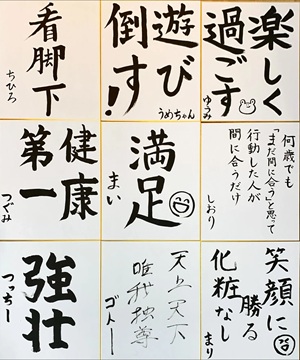 看脚下
ちひろ
遊び
倒す!
うめちゃん
楽しく
過ごす
ゆうみ
健康
第一
つぐみ
満足
まい
何歳でも
「まだ間に合う」と思って
行動した人が
間に合うだけ
しおり
強壮
つっちー
天上天下
唯我独尊
ゴトー
笑顔に
勝る
化粧なし
まり